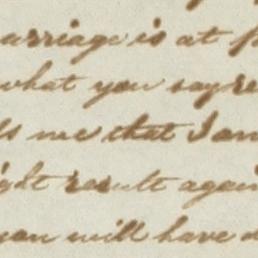 arriage is at
what you say re
ls me that I am
ight result again
you will have d